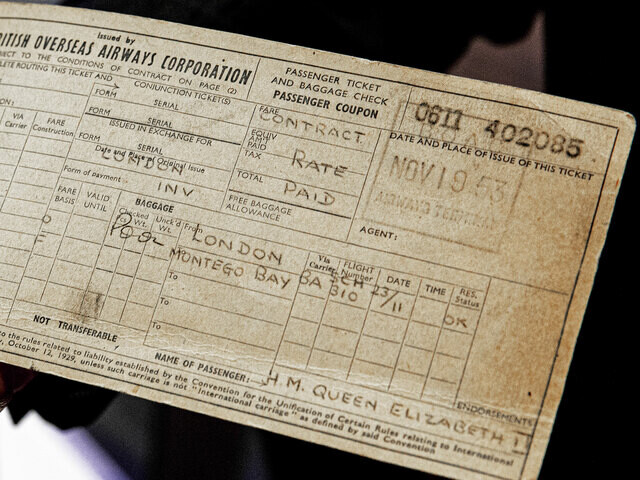 Issued by
ITISH OVERSEAS AIRWAYS CORPORATION
JECT TO THE CONDITIONS OF CONTRACT ON PAGE (2)
PLETE ROUTING THIS TICKET AND
CONJUNCTION TICKET(S)
PASSENGER TICKET
AND BAGGAGE CHECK
PASSENGER COUPON
0611 402085
DATE AND PLACE OF ISSUE OF THIS TICKET
NOV 19 53
AGENT:
FORM SERIAL
FORM SERIAL
ISSUED IN EXCHANGE FOR
FORM SERIAL
Date and Place of Original Issue
LONDON
Form of payment
INV
VIA Carrier
FARE Construction
FARE CONTRACT
EQUIV AMT PAID
TAX RATE
TOTAL PAID
FREE BAGGAGE ALLOWANCE
FARE BASIS
VALID UNTIL
BAGGAGE
Checked Pcs Wt.
Unck'd Wt.
From LONDON
Via Carrier
FLIGHT Number
DATE
TIME
RES. Status
MONTEGO BAY BA SCH 310 23/11 OK
To
To
To
NOT TRANSFERABLE
NAME OF PASSENGER: H.M. QUEEN ELIZABETH II
ENDORSEMENTS
to the rules related to liability established by the Convention for the Unification of Certain Rules relating to International
, October 12, 1929, unless such carriage is not "International carriage" as defined by said Convention